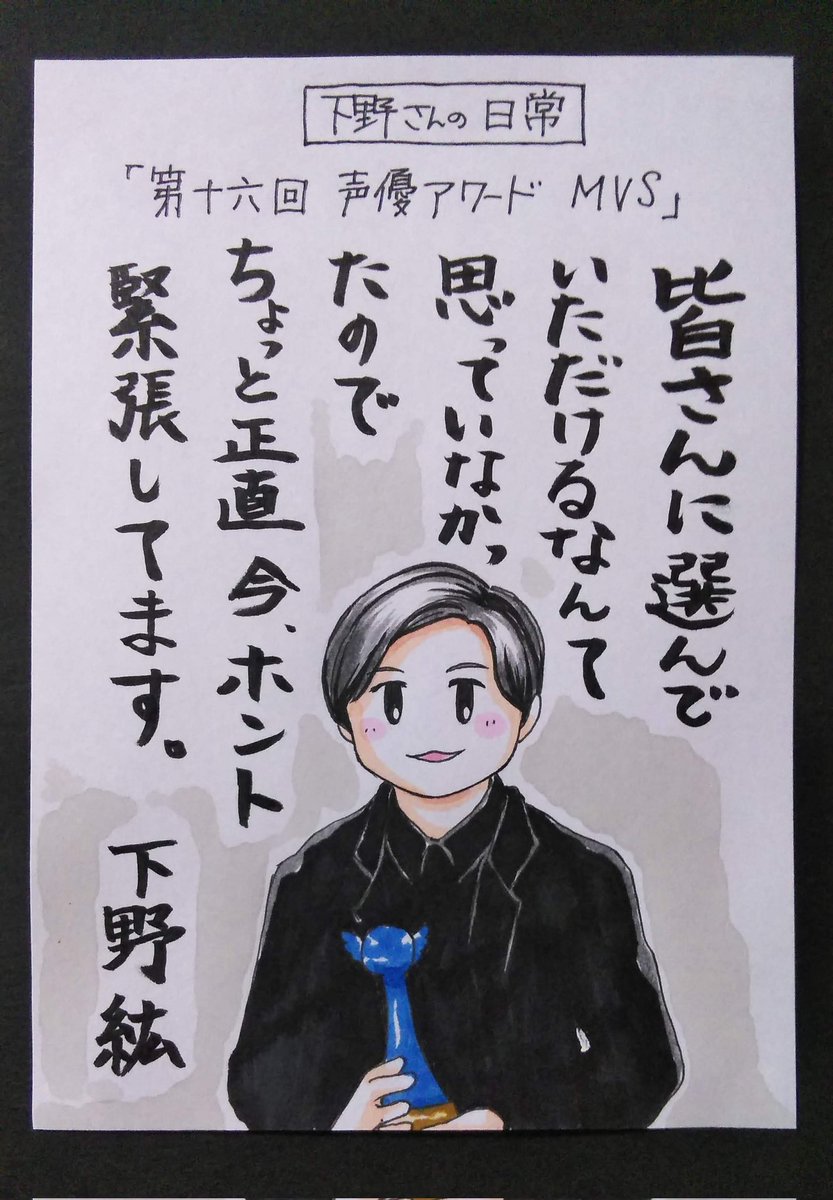 下野さんの日常
「第十六回 声優アワード MVS」
皆さんに選んで
いただけるなんて
思っていなかっ
たので
ちょっと正直 今、ホント
緊張してます。
下野紘